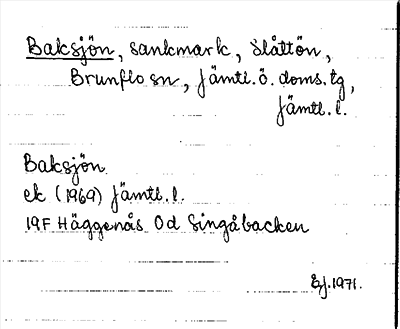 Baksjön, sankmark, Slåttön,
Brunflo sn, Jämtl. ö. doms. tg,
Jämtl. l.
Baksjön
ek (1969) Jämtl. l.
19F Häggenås Od Singåbacken
1971.